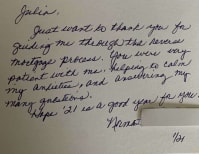 Julia,
Just want to thank you for
guiding me through the reverse
mortgage process. You were very
patient with me, helping to calm
my anxieties, and answering my
many questions.
Hope '21 is a good year for you.
Norma
1/21